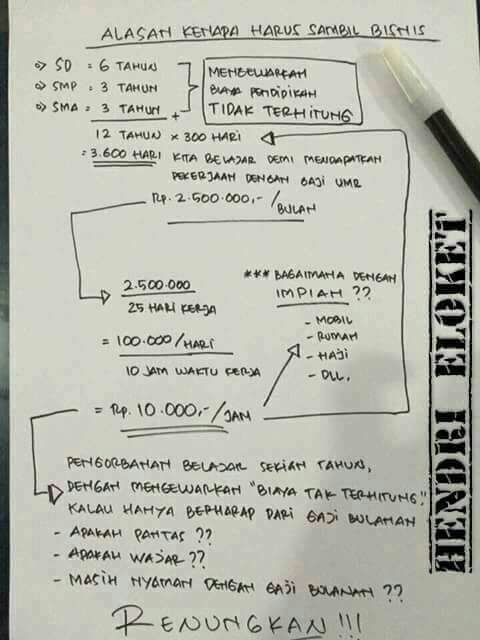 ALASAN KENAPA HARUS SAMBIL BISNIS
SD = 6 TAHUN
SMP = 3 TAHUN
SMA = 3 TAHUN +
MENGELUARKAN
BIAYA PENDIDIKAN
TIDAK TERHITUNG
12 TAHUN × 300 HARI
= 3.600 HARI KITA BELAJAR DEMI MENDAPATKAN
PEKERJAAN DENGAN GAJI UMR
Rp. 2.500.000,-/BULAN
2.500.000
25 HARI KERJA
= 100.000/HARI
10 JAM WAKTU KERJA
= Rp. 10.000,-/JAM
*** BAGAIMANA DENGAN
IMPIAN ??
- MOBIL
- RUMAH
- HAJI
- DLL.
PENGORBANAN BELAJAR SEKIAN TAHUN,
DENGAN MENGELUARKAN "BIAYA TAK TERHITUNG"
KALAU HANYA BERHARAP DARI GAJI BULANAN
- APAKAH PANTAS ??
- APAKAH WAJAR ??
- MASIH NYAMAN DENGAN GAJI BULANAN ??
RENUNGKAN !!!
HENDRI ELOKET